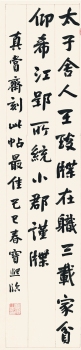 太子舍人王琰牒在職三載家貧
仰希江郢所統小郡謹牒
真賞齋刻此帖最佳己巳春寶熙臨